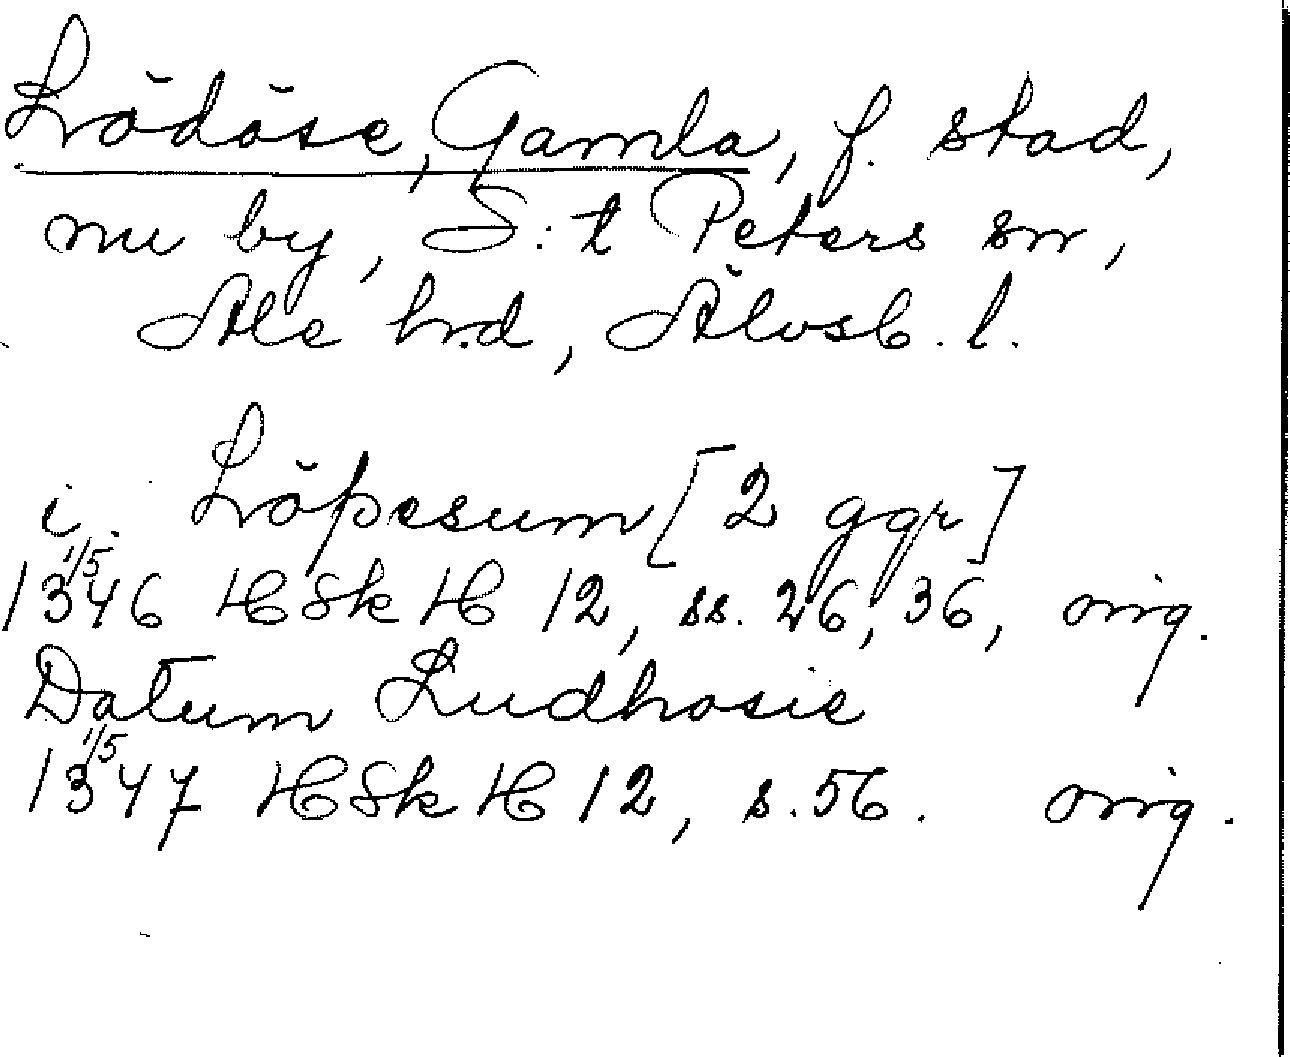 Lödöse, Gamla, f. stad,
nu by, S:t Peters sn,
Ale hrd, Älvsb. l.
i. Löþesum [2 ggr]
1/5
1346 HSkH 12, ss. 26, 36, orig.
Datum Ludhosie
1/5
1347 HSkH 12, s. 56. orig.